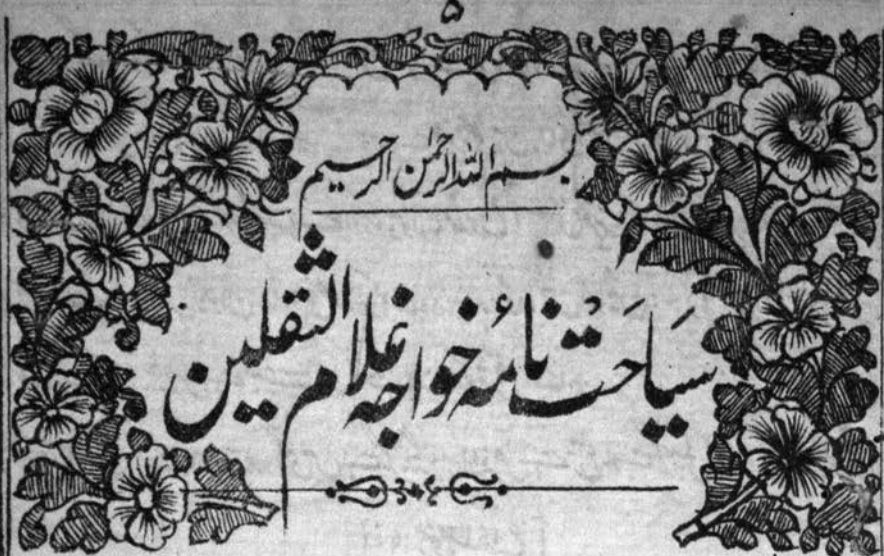 ۵
بسم اللہ الرحمٰن الرحیم
سیاحت نامۂ خواجہ غلام الثقلین